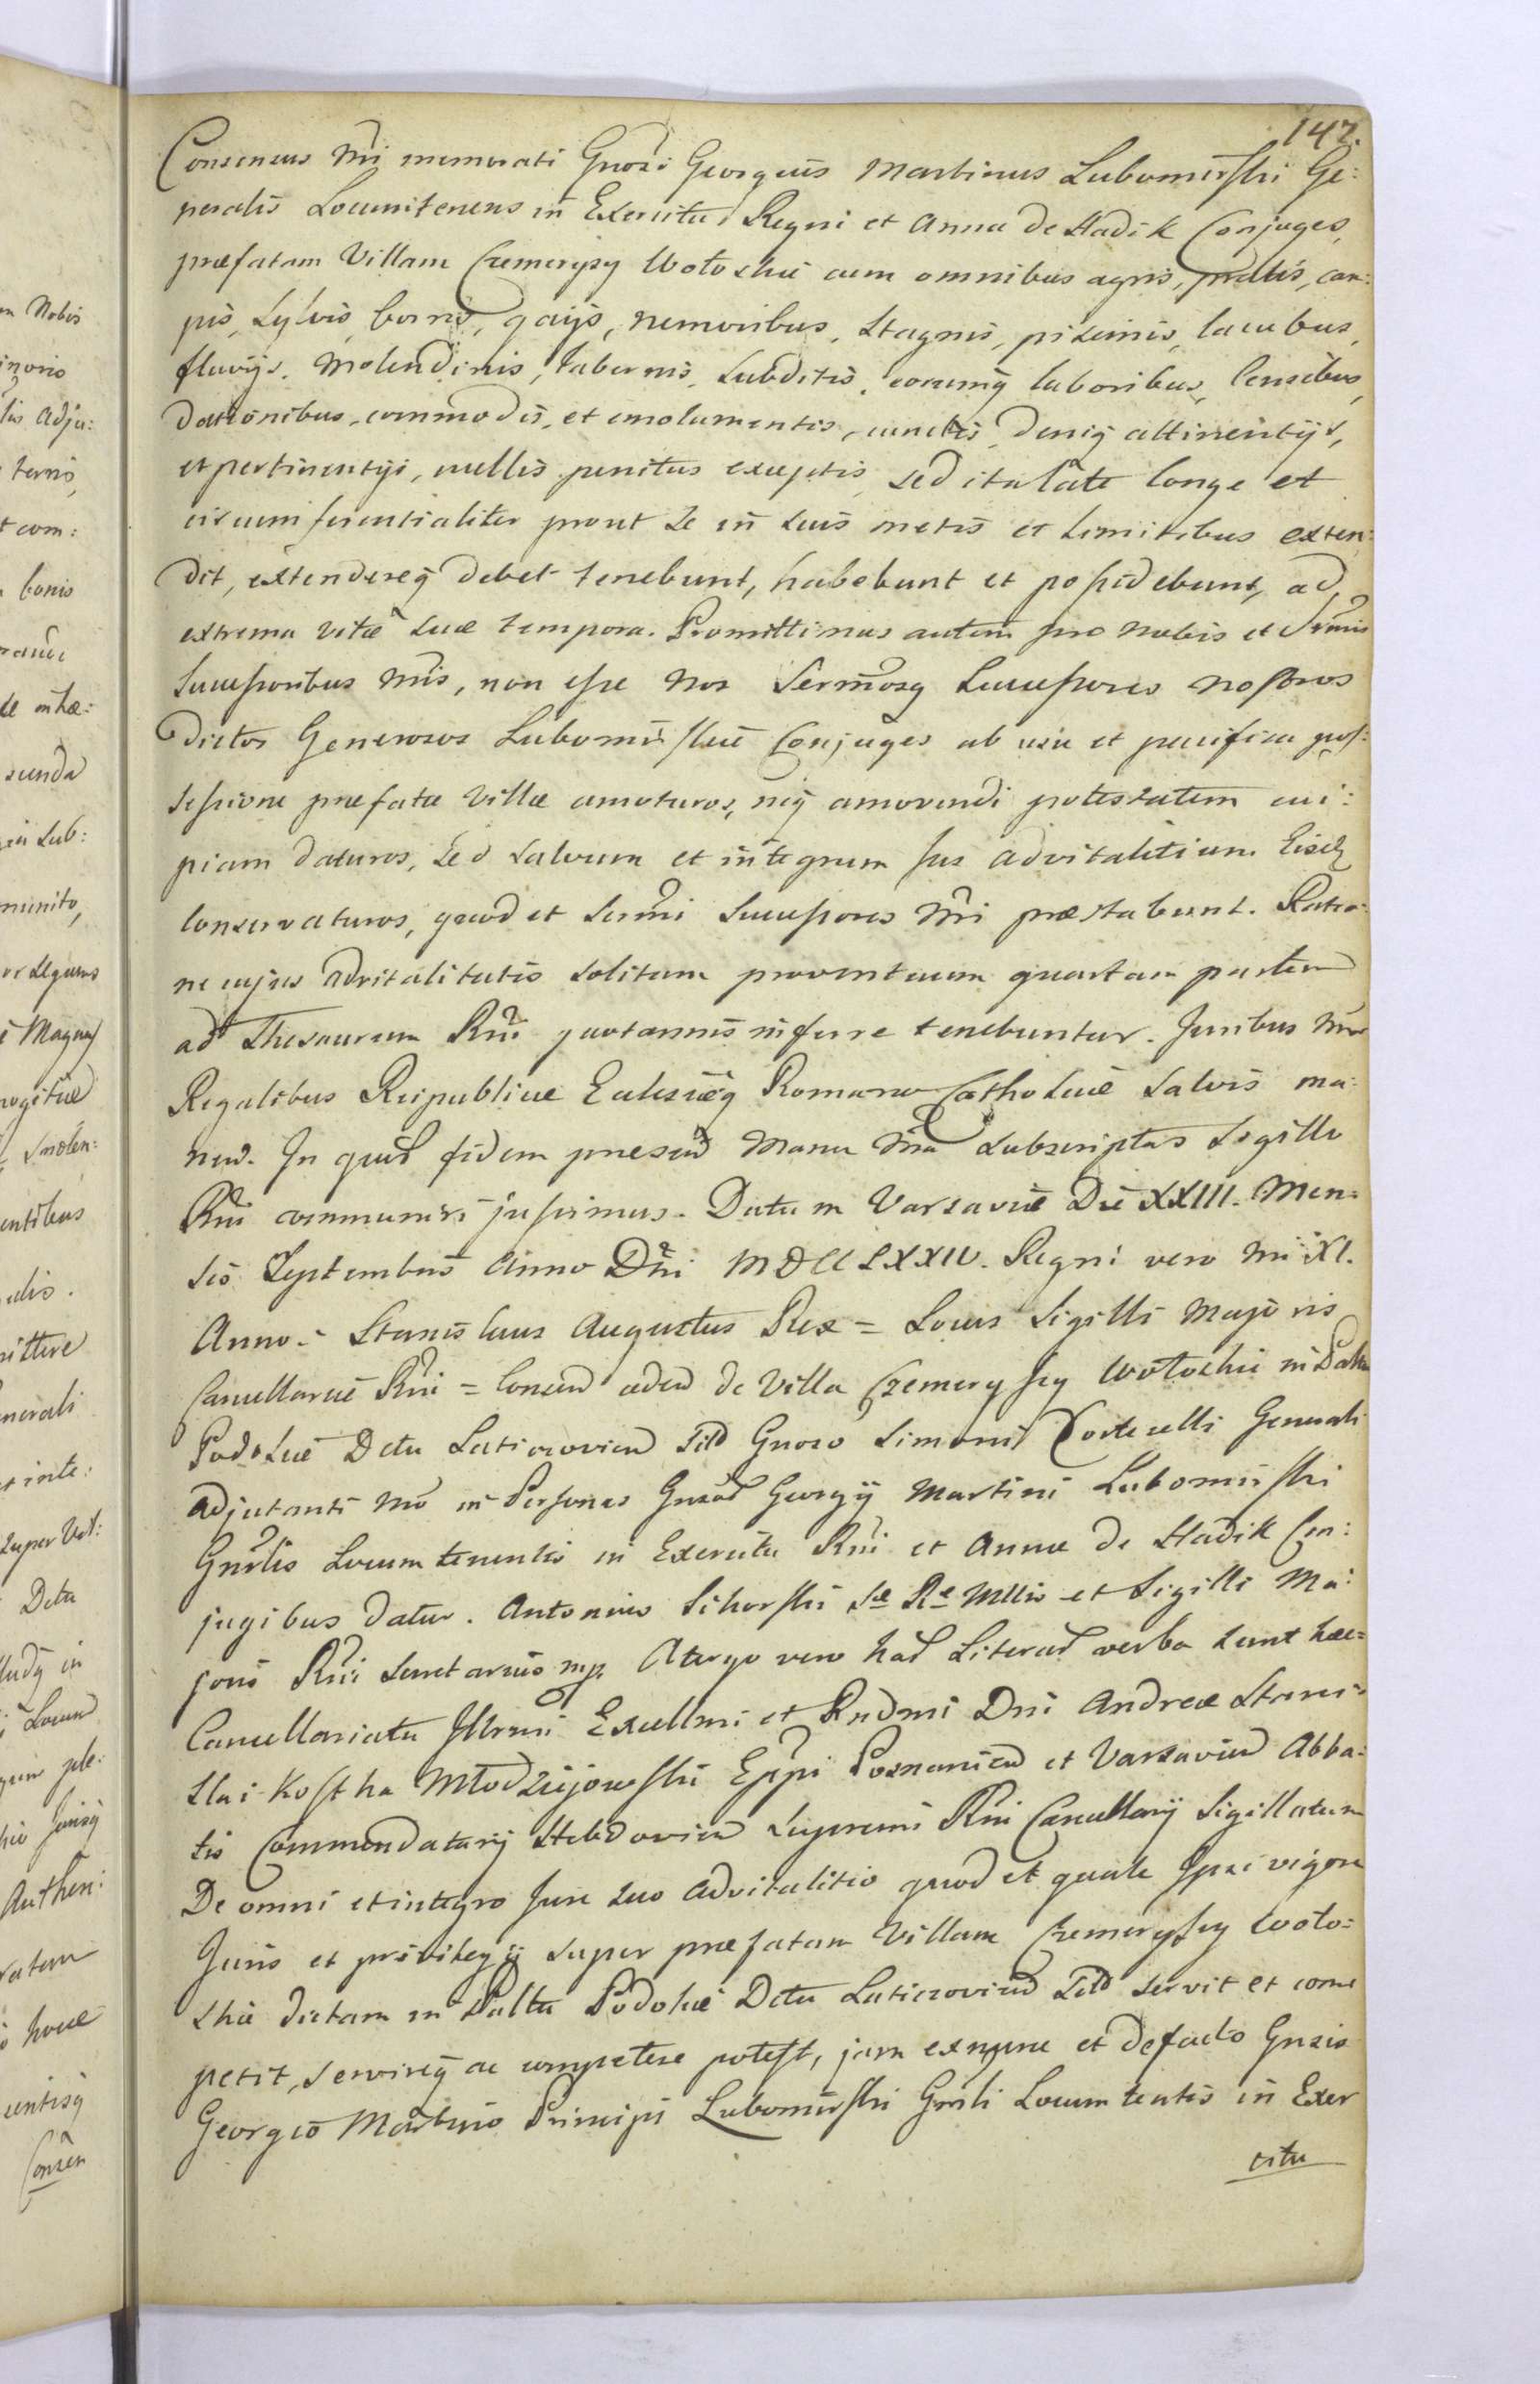 147.
Consensus Nri memorati Gnosi Georgius Martinus Lubomirski Ge:
neralis Locumtenens in Exercitu Regni et Anna de Hadik Conjuges,
præfatam Villam Czemerysy Wołoskie cum omnibus agris, pratis, cam:
pis, sylvis, borris, gaijs, nemoribus, stagnis, piscinis, lacubus,
fluvijs, Molendinis, tabernis, subditis, eorumq laboribus, Censibus,
dationibus, commodis, et emolumentis, cunctis, deniq attinentijs,
et pertinentijs, nullis penitus exceptis, sed ita late longe et
circumferentialiter prout se in suis metis et limitibus exten:
dit, extendereq debet tenebunt, habebunt et possidebunt, ad
extrema vitæ suæ tempora. Promittimus autem pro Nobis et Srmis
Successoribus Nris, non esse Nos Sermosq Successores nostros
dictos Generosos Lubomirskie Conjuges ab usu et pacifica pos:
sessione præfatæ Villæ amoturos, neq amovendi potestatem cui:
piam daturos, sed salvum et integrum Jus advitalitium Eisdq
conservaturos, quod et Sermi Successores Nri præstabunt. Ratio:
ne cujus advitalitatis solitam proventuum quartam partem
ad Thesaurum Rni quotannis inferre tenebuntur. Juribus Nris
Regalibus Reipublicæ Ecclesiæq Romanæ Catholicæ salvis ma:
nen. In quod fidem præsen Manu Nra subscriptas Sigillo
Rni communiri jussimus. Datum Varsaviæ Die XXIII. Men:
sis Septembris Anno Dni MDCCLXXIV. Regni vero Nri XI.
Anno. Stanislaus Augustus Rex = Locus Sigilli Majoris
Cancellariæ Rni = Consen aden de Villa Czemerysy Wołoskie in Pallu
Podoliæ Dctu Laticzovien Gnoso Simoni Corticelli Generali
Adjutanti Nro in Personas Gnsor Georgij Martini Lubomirski
Gnrlis Locumtenentis in Exercitu Rni et Annæ de Hadik Con:
jugibus datur. Antonius Sikorski Sæ Ræ Mttis et Sigilli Ma:
joris Rni Secretarius mp. A tergo vero har Literar verba sunt hæc =
Cancellariatu Illrmi Excellmi et Rndmi Dni Andreæ Stanis:
slai Kostka Młodziejowski Eppi Posnanien et Varsavien Abba:
tis Commendatarij Hebdovien Supremi Rni Cancellarij Sigillatum
De omni et integro Jure suo advitalitio quod et quale Ipsi vigore
Juris et privilegij super præfatam Villam Czemerysy Woło:
skie dictam in Palltu Podoliæ Dctu Laticzovien servit et com
petit, servireq ac competere potest, jam ex nunc et de facto Gnsis
Georgio Martino Principi Lubomirski Gnrli Locumtentis in Exer
citu